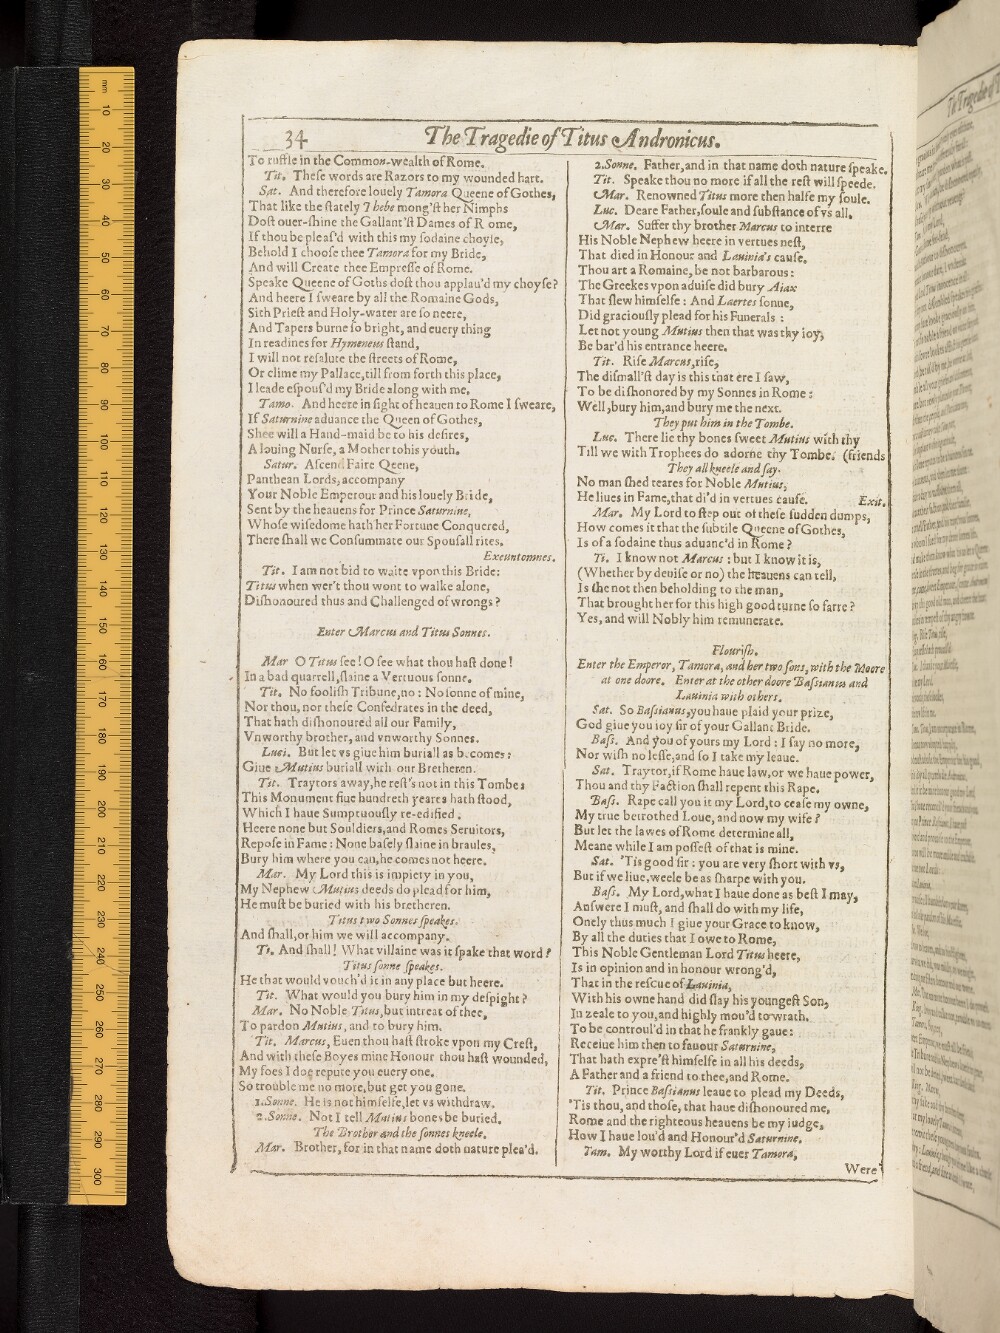 34
The Tragedie of Titus Andronicus.
To ruffle in the Common-wealth of Rome.
Tit. These words are Razors to my wounded hart.
Sat. And therefore louely Tamora Queene of Gothes,
That like the stately Thebe mong'st her Nimphs
Dost ouer-shine the Gallant'st Dames of Rome,
If thou be pleas'd with this my sodaine choyse,
Behold I choose thee Tamora for my Bride,
And will Create thee Empresse of Rome.
Speake Queene of Goths dost thou applau'd my choyse?
And heere I sweare by all the Romaine Gods,
Sith Priest and Holy-water are so neere,
And Tapers burne so bright, and euery thing
In readines for Hymeneus stand,
I will not resalute the streets of Rome,
Or clime my Pallace, till from forth this place,
I leade espous'd my Bride along with me,
Tamo. And heere in sight of heauen to Rome I sweare,
If Saturnine aduance the Queen of Gothes,
Shee will a Hand-maid be to his desires,
A louing Nurse, a Mother to his youth.
Satur. Ascend Faire Qeene,
Panthean Lords, accompany
Your Noble Emperour and his louely Bride,
Sent by the heauens for Prince Saturnine,
Whose wisedome hath her Fortune Conquered,
There shall we Consummate our Spousall rites.
Exeunt omnes.
Tit. I am not bid to waite vpon this Bride:
Titus when wer't thou wont to walke alone,
Dishonoured thus and Challenged of wrongs?
Enter Marcus and Titus Sonnes.
Mar O Titus see! O see what thou hast done!
In a bad quarrell, slaine a Vertuous sonne.
Tit. No foolish Tribune, no: No sonne of mine,
Nor thou, nor these Confedrates in the deed,
That hath dishonoured all our Family,
Vnworthy brother, and vnworthy Sonnes.
Luci. But let vs giue him buriall as becomes:
Giue Mutius buriall with our Bretheren.
Tit. Traytors away, he rest's not in this Tombe:
This Monument fiue hundreth yeares hath stood,
Which I haue Sumptuously re-edified.
Heere none but Souldiers, and Romes Seruitors,
Repose in Fame: None basely slaine in braules,
Bury him where you can, he comes not heere.
Mar. My Lord this is impiety in you,
My Nephew Mutius deeds do plead for him,
He must be buried with his bretheren.
Titus two Sonnes speakes.
And shall, or him we will accompany.
Ti. And shall! What villaine was it spake that word?
Titus sonne speakes.
He that would vouch'd it in any place but heere.
Tit. What would you bury him in my despight?
Mar. No Noble Titus, but intreat of thee,
To pardon Mutius, and to bury him.
Tit. Marcus, Euen thou hast stroke vpon my Crest,
And with these Boyes mine Honour thou hast wounded,
My foes I doe repute you euery one.
So trouble me no more, but get you gone.
1.Sonne. He is not himselfe, let vs withdraw.
2.Sonne. Not I tell Mutius bones be buried.
The Brother and the sonnes kneele.
Mar. Brother, for in that name doth nature plea'd.
2.Sonne. Father, and in that name doth nature speake.
Tit. Speake thou no more if all the rest will speede.
Mar. Renowned Titus more then halfe my soule.
Luc. Deare Father, soule and substance of vs all,
Mar. Suffer thy brother Marcus to interre
His Noble Nephew heere in vertues nest,
That died in Honour and Lauinia's cause,
Thou art a Romaine, be not barbarous:
The Greekes vpon aduise did bury Aiax
That slew himselfe: And Laertes sonne,
Did graciously plead for his Funerals:
Let not young Mutius then that was thy ioy,
Be bar'd his entrance heere.
Tit. Rise Marcus, rise,
The dismall'st day is this that ere I saw,
To be dishonored by my Sonnes in Rome:
Well, bury him, and bury me the next.
They put him in the Tombe.
Luc. There lie thy bones sweet Mutius with thy
Till we with Trophees do adorne thy Tombe. (friends
They all kneele and say.
No man shed teares for Noble Mutius,
He liues in Fame, that di'd in vertues cause. Exit.
Mar. My Lord to step out of these sudden dumps,
How comes it that the subtile Queene of Gothes,
Is of a sodaine thus aduanc'd in Rome?
Ti. I know not Marcus: but I know it is,
(Whether by deuise or no) the heauens can tell,
Is she not then beholding to the man,
That brought her for this high good turne so farre?
Yes, and will Nobly him remunerate.
Flourish.
Enter the Emperor, Tamora, and her two sons, with the Moore
at one doore. Enter at the other doore Bassianus and
Lauinia with others.
Sat. So Bassianus, you haue plaid your prize,
God giue you ioy sir of your Gallant Bride.
Bass. And you of yours my Lord: I say no more,
Nor wish no lesse, and so I take my leaue.
Sat. Traytor, if Rome haue law, or we haue power,
Thou and thy Faction shall repent this Rape.
Bass. Rape call you it my Lord, to cease my owne,
My true betrothed Loue, and now my wife?
But let the lawes of Rome determine all,
Meane while I am possest of that is mine.
Sat. 'Tis good sir: you are very short with vs,
But if we liue, weele be as sharpe with you.
Bass. My Lord, what I haue done as best I may,
Answere I must, and shall do with my life,
Onely thus much I giue your Grace to know,
By all the duties that I owe to Rome,
This Noble Gentleman Lord Titus heere,
Is in opinion and in honour wrong'd,
That in the rescue of Lauinia,
With his owne hand did slay his youngest Son,
In zeale to you, and highly mou'd to wrath.
To be controul'd in that he frankly gaue:
Receiue him then to fauour Saturnine,
That hath expre'st himselfe in all his deeds,
A Father and a friend to thee, and Rome.
Tit. Prince Bassianus leaue to plead my Deeds,
'Tis thou, and those, that haue dishonoured me,
Rome and the righteous heauens be my iudge,
How I haue lou'd and Honour'd Saturnine.
Tam. My worthy Lord if euer Tamora,
Were
mm 10 20 30 40 50 60 70 80 90 100 110 120 130 140 150 160 170 180 190 200 210 220 230 240 250 260 270 280 290 300